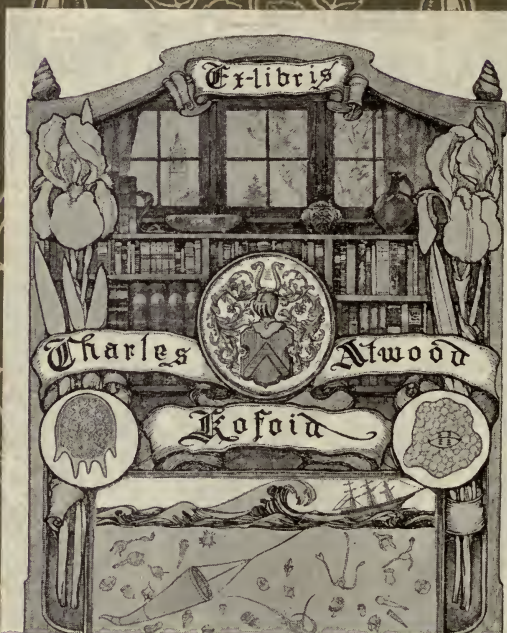 Ex-libris
Charles Atwood
Kofoid